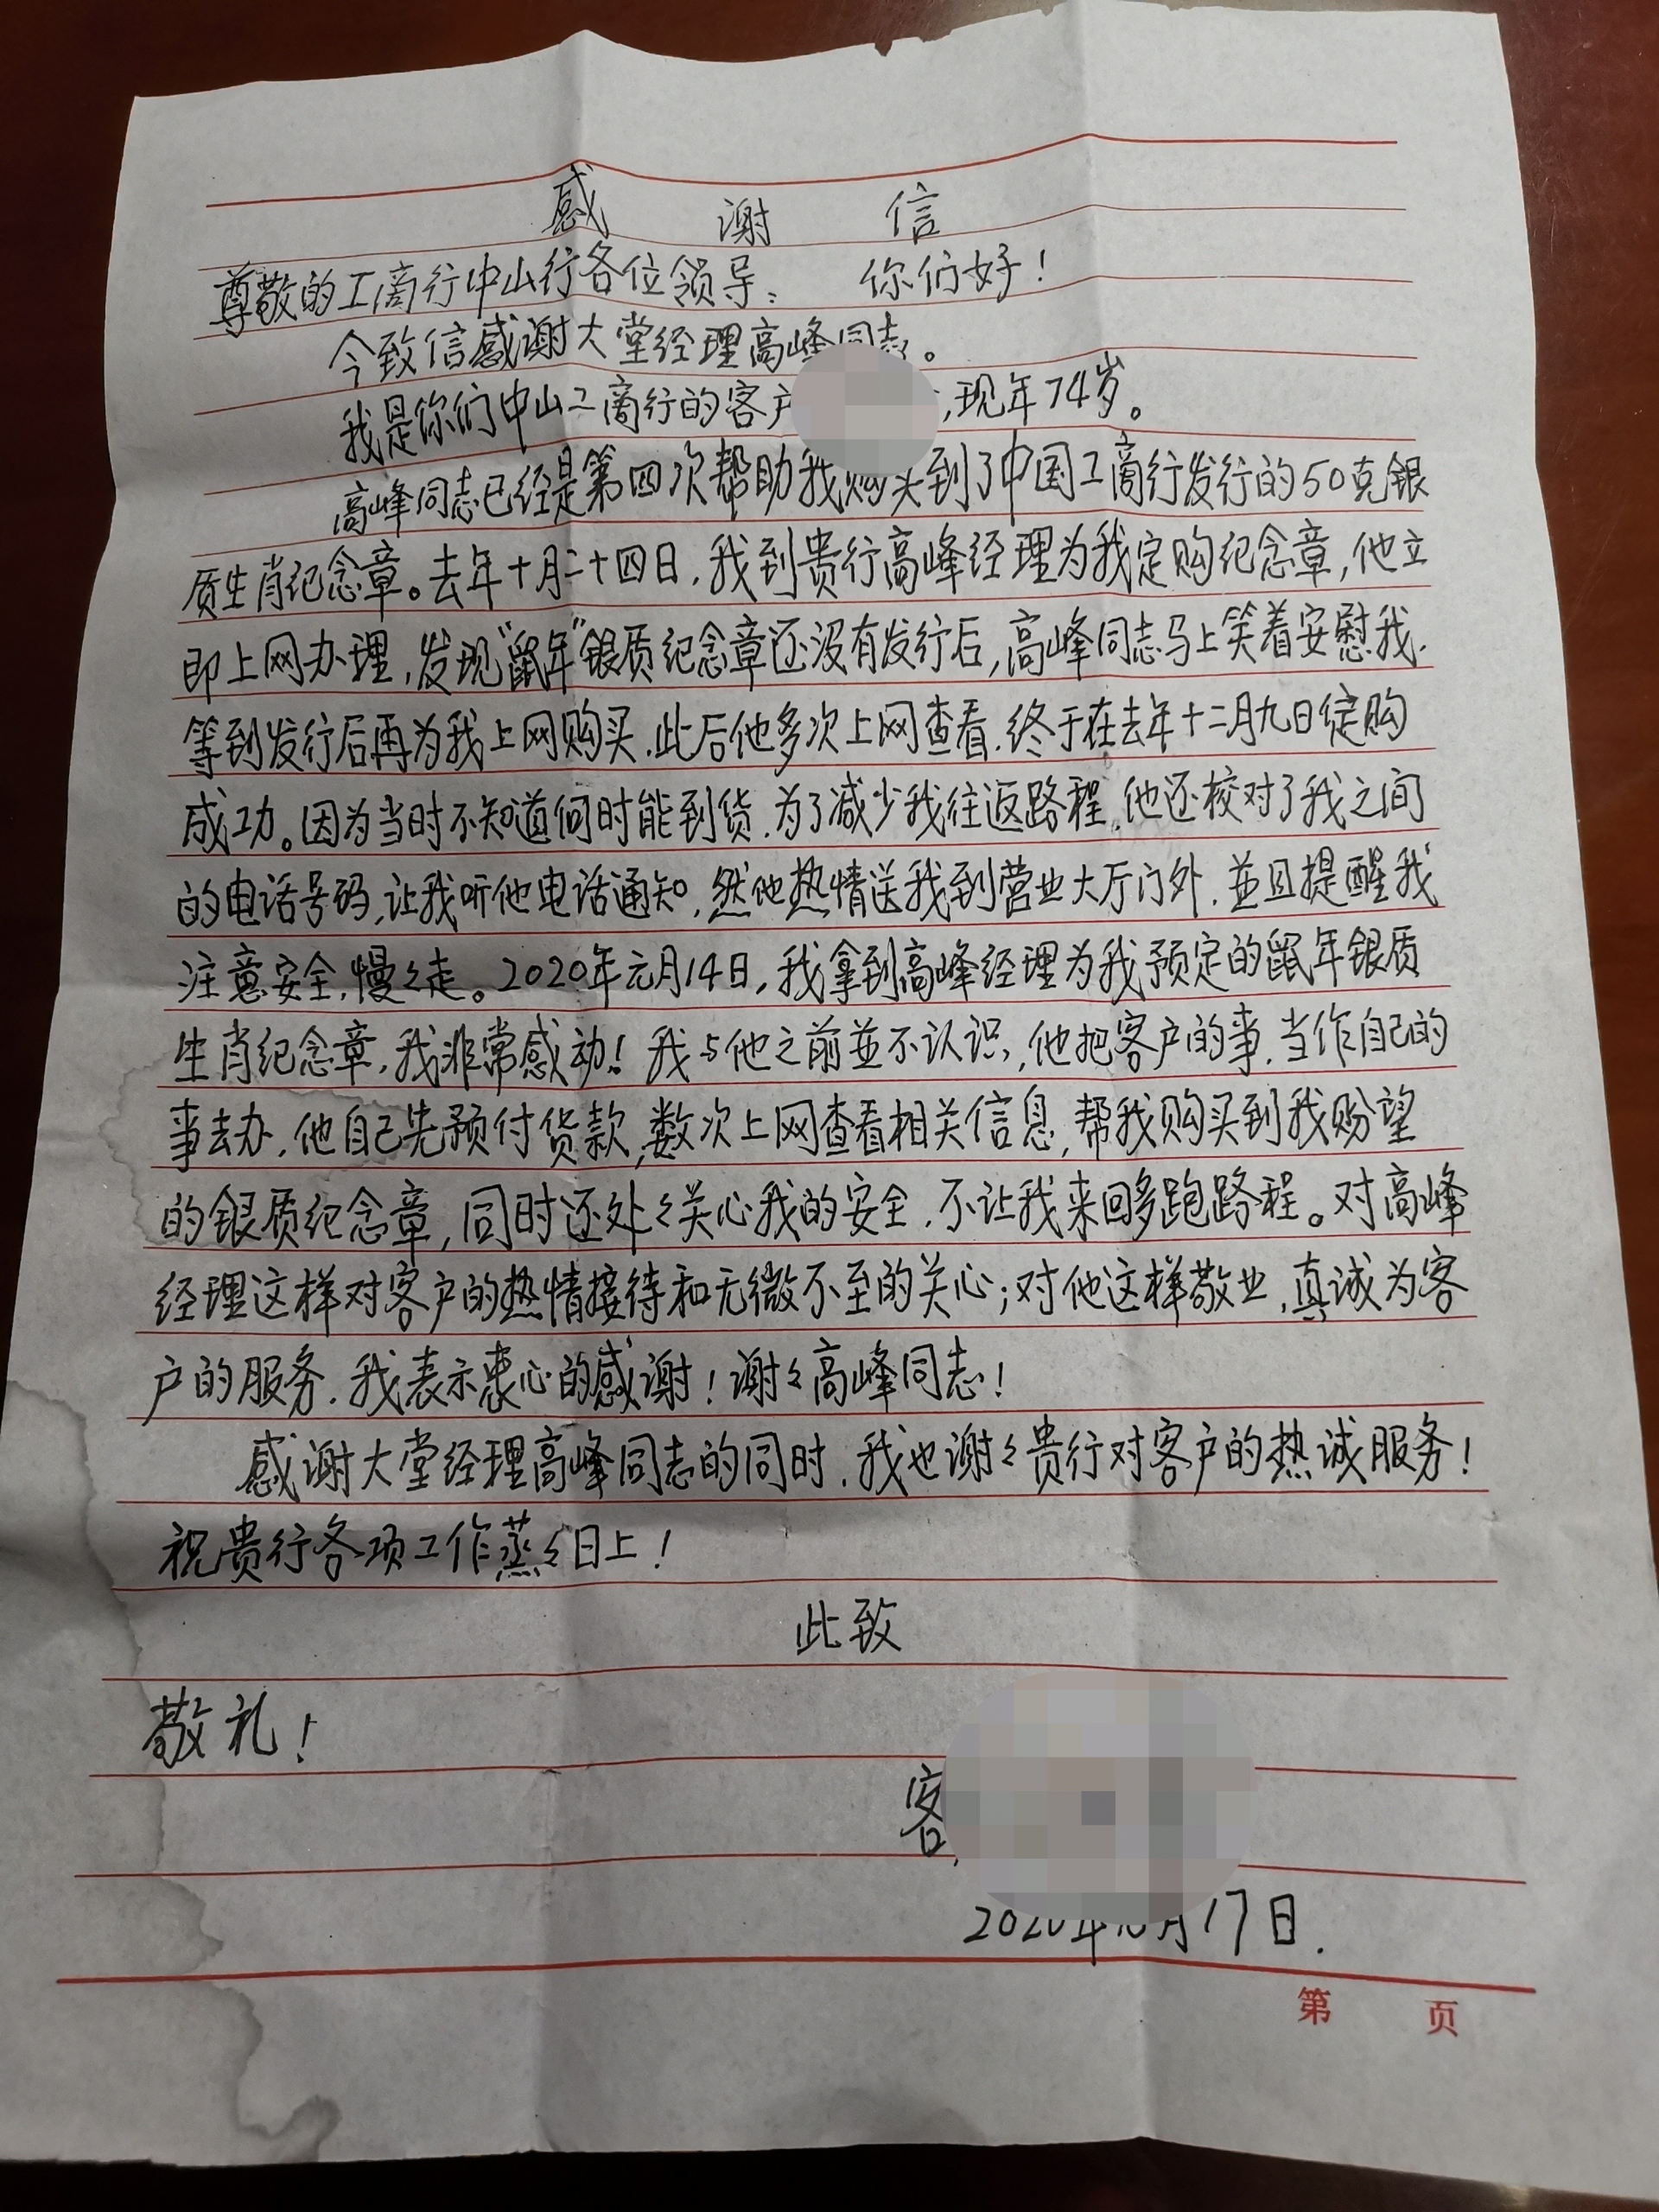 感 谢 信
尊敬的工商行中山行各位领导： 你们好！
今致信感谢大堂经理高峰同志。
我是你们中山工商行的客户 ，现年74岁。
高峰同志已经是第四次帮助我购买到了中国工商行发行的50克银
质生肖纪念章。去年十月二十四日，我到贵行高峰经理为我定购纪念章，他立
即上网办理，发现“鼠年”银质纪念章还没有发行后，高峰同志马上笑着安慰我，
等到发行后再为我上网购买，此后他多次上网查看，终于在去年十二月九日定购
成功。因为当时不知道何时能到货，为了减少我往返路程，他还校对了我之间
的电话号码，让我听他电话通知，然他热情送我到营业大厅门外，並且提醒我
注意安全，慢々走。2020年元月14日，我拿到高峰经理为我预定的鼠年银质
生肖纪念章，我非常感动！我与他之前並不认识，他把客户的事，当作自己的
事去办，他自己先预付货款，数次上网查看相关信息，帮我购买到我盼望
的银质纪念章，同时还处々关心我的安全，不让我来回多跑路程。对高峰
经理这样对客户的热情接待和无微不至的关心；对他这样敬业，真诚为客
户的服务，我表示衷心的感谢！谢々高峰同志！
感谢大堂经理高峰同志的同时，我也谢々贵行对客户的热诚服务！
祝贵行各项工作蒸々日上！
此致
敬礼！
客
2020年 月17日.
第 页